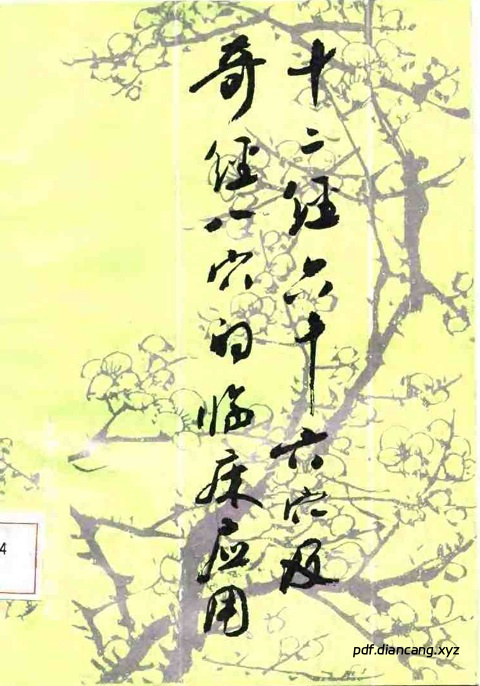 十二经六十六穴及
奇经八穴的临床应用
4
pdf.diancang.xyz